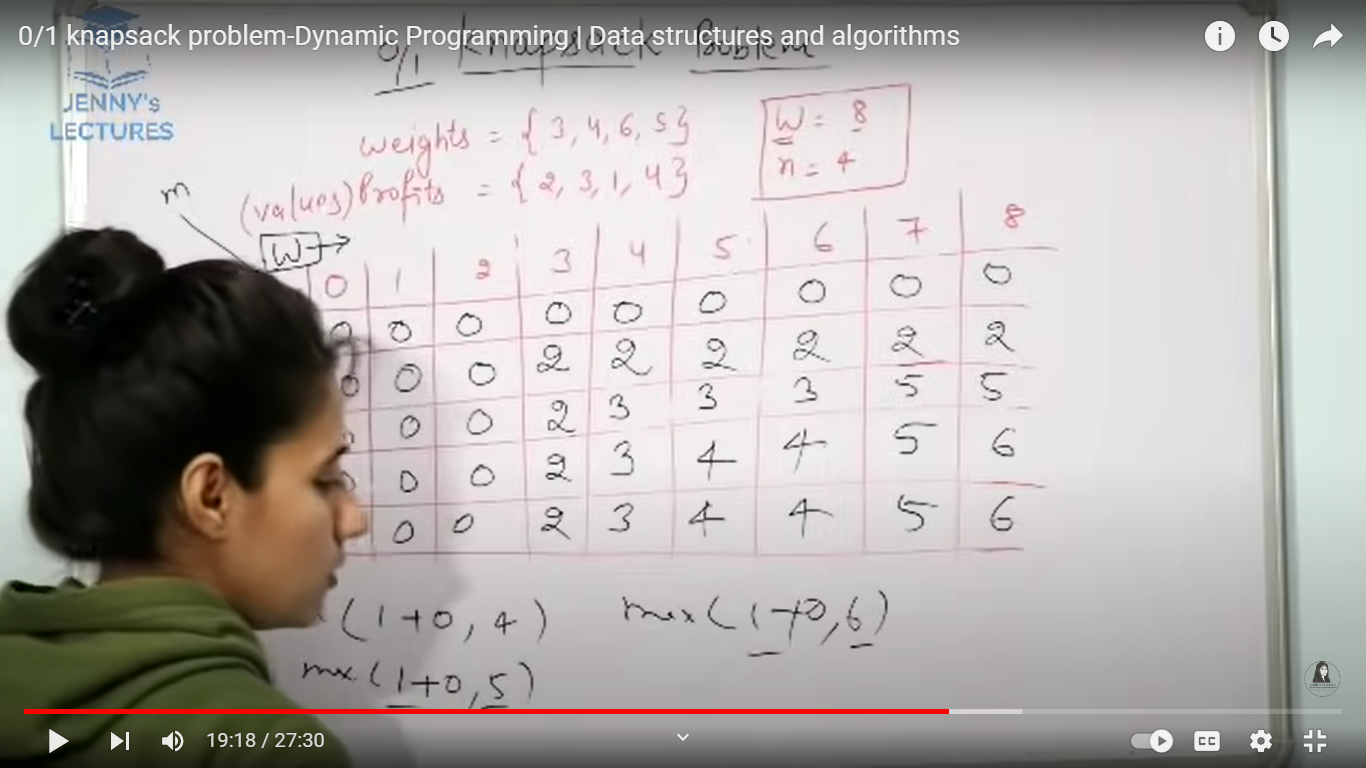 0/1 knapsack problem-Dynamic Programming | Data structures and algorithms
0/1 Knapsack Problem
JENNY's
LECTURES
weights = { 3, 4, 6, 5 }
W = 8
(values) Profits = { 2, 3, 1, 4 }
n = 4
m
W →
0 1 2 3 4 5 6 7 8
0 0 0 0 0 0 0 0 0
0 0 0 2 2 2 2 2 2
0 0 2 3 3 3 5 5
0 0 2 3 4 4 5 6
0 0 2 3 4 4 5 6
(1+0, 4) max (1+0, 6)
mx. (1+0, 5)
19:18 / 27:30
CC